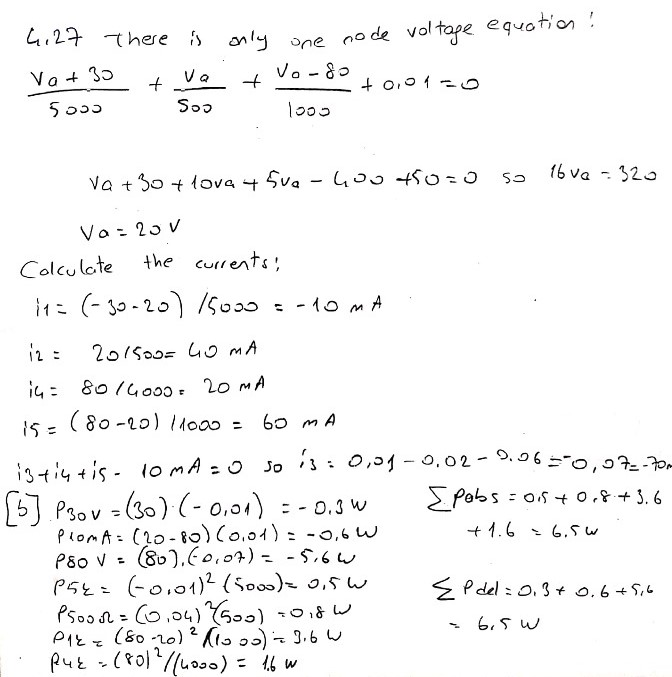 4.27 There is only one node voltage equation!
Va + 30 / 5000 + Va / 500 + Va - 80 / 1000 + 0,01 = 0
Va + 30 + 10va + 5va - 400 + 50 = 0 so 16va = 320
Va = 20 V
Calculate the currents;
i1 = (-30-20) /5000 = -10 mA
i2 = 20/500= 40 mA
i4 = 80 /4000 = 20 mA
i5 = (80-20) /1000 = 60 mA
i3+i4+i5 - 10mA = 0 so i3 = 0,01 - 0,02 - 0.06 = -0,07= -70m
[b] P30V = (30).(-0,01) = -0.3 W
P10mA = (20-80)(0,01) = -0,6 W
P80 V = (80).(-0,07) = -5,6 W
P5k = (-0,01)²(5000) = 0,5 W
P500Ω = (0,04)²(500) = 0,8 W
P1k = (80-20)²/(1000) = 3.6 W
P4k = (80)²/(4000) = 1.6 W
∑ Pabs = 0.5 + 0,8 + 3.6
+ 1.6 = 6.5 W
∑ Pdel = 0.3 + 0.6 + 5,6
= 6.5 W